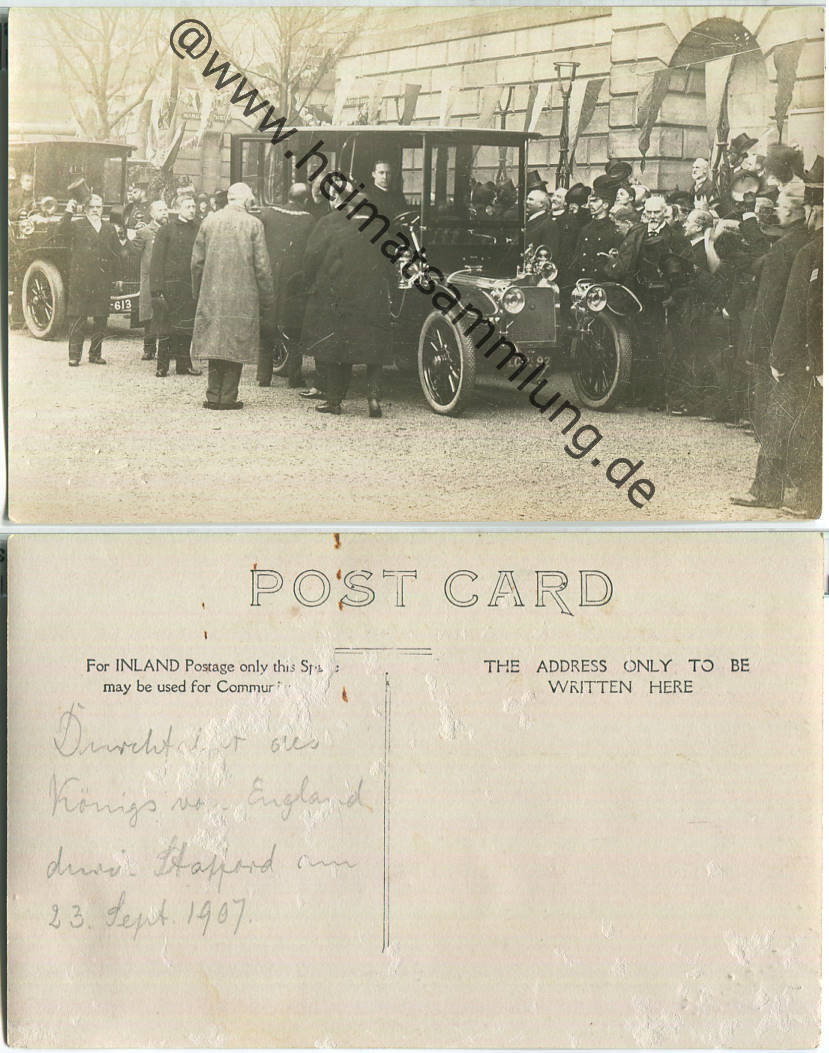 @www.heimatsammlung.de
613
97
POST CARD
For INLAND Postage only this
may be used for
THE ADDRESS ONLY TO BE
WRITTEN HERE
des
Königs von England
durch Stafford am
23. Sept. 1907.